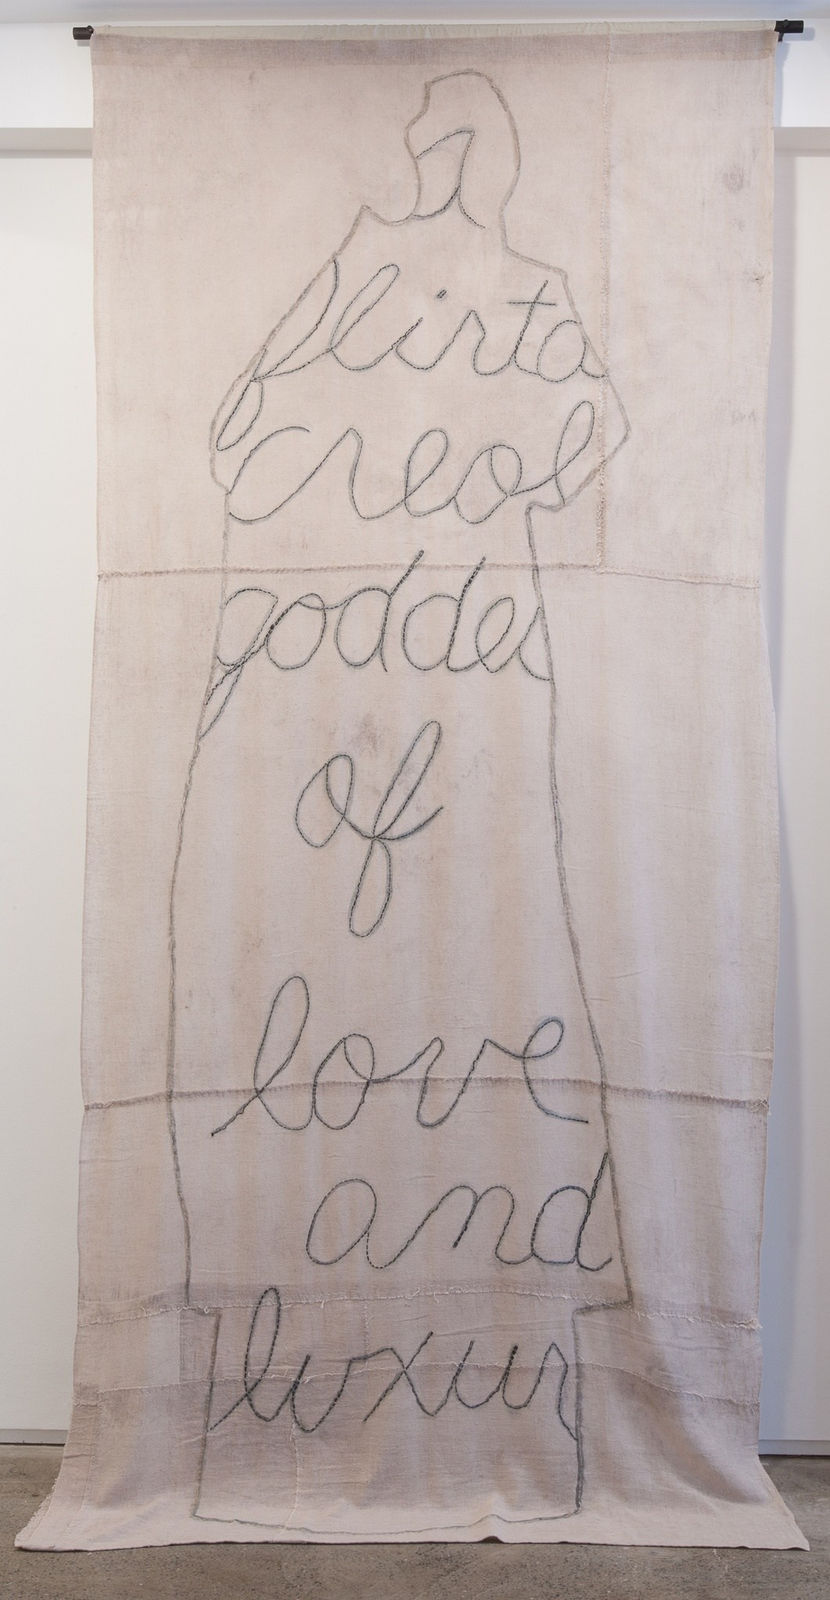 flirta
creol
goddes
of
love
and
luxur